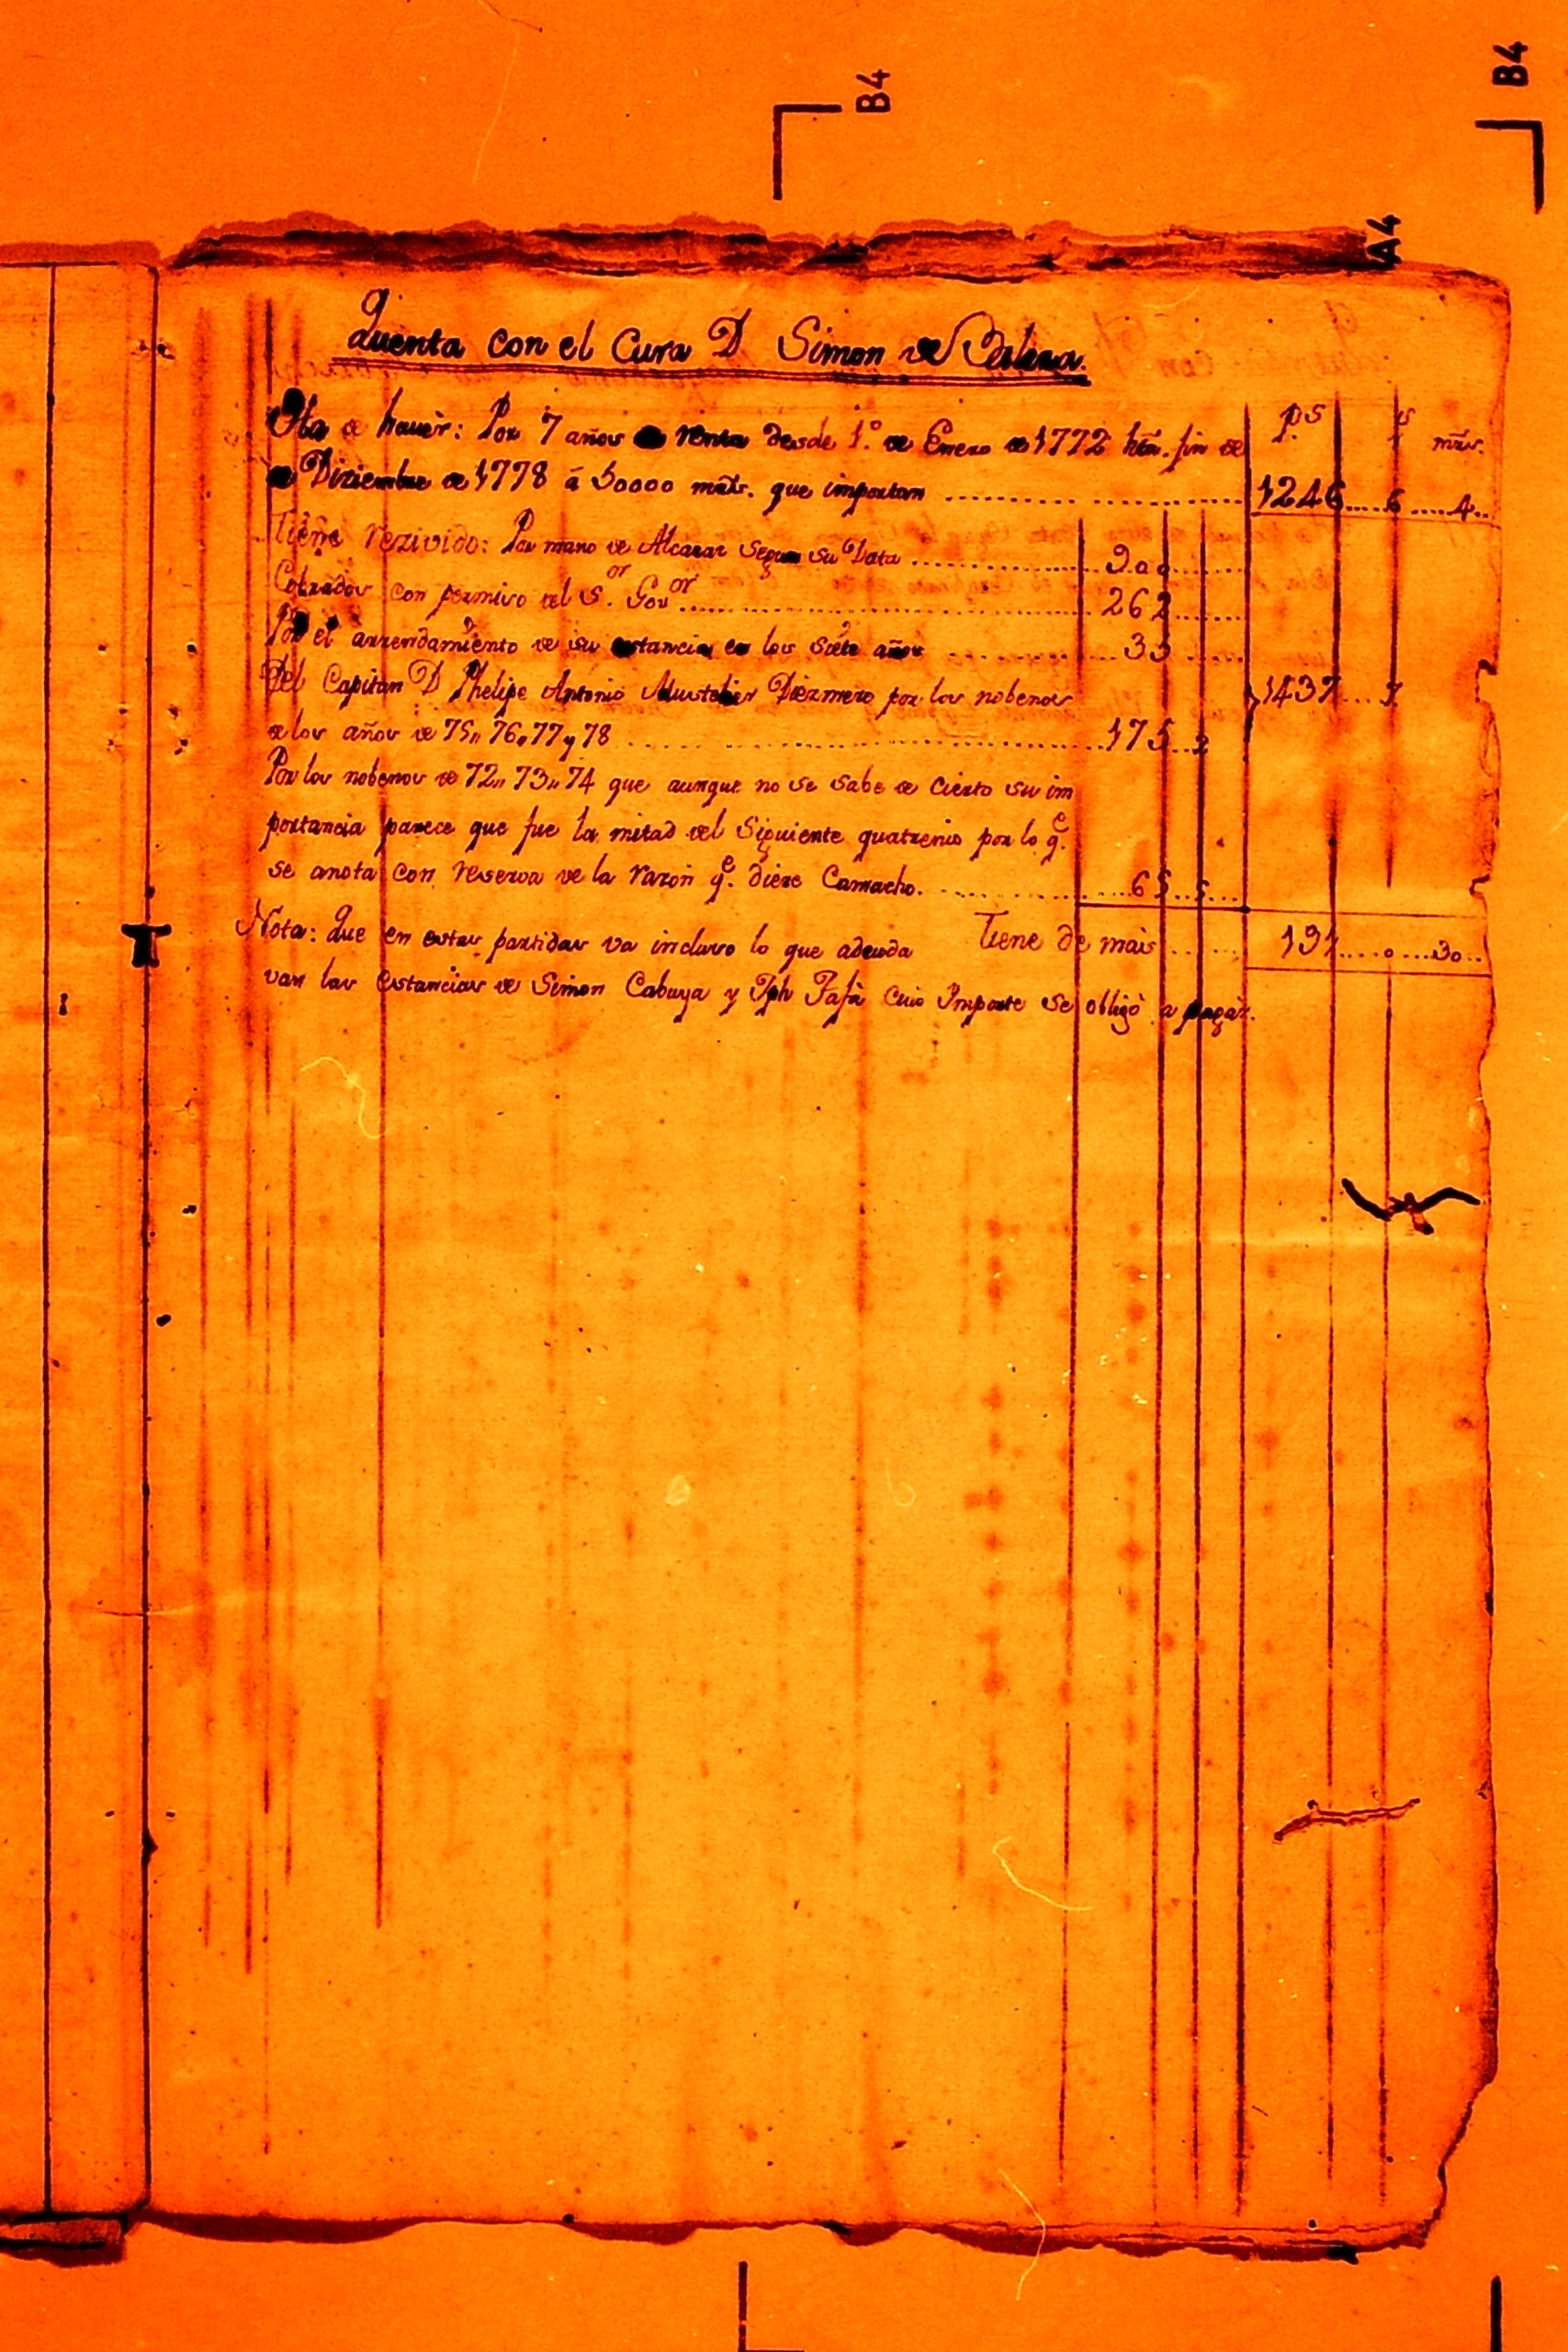 B4
B4
A4
Quenta con el Cura D Simon de
Ha de haver: Por 7 años de renta desde 1.º de Enero de 1772 hta. fin de
de Diziembre de 1778 á 50000 mrs. que importan ........ 1246....6.....4..
ps rs mrs.
Tiene rezivido: Por mano de Alcazar segun su Data ........ 900
Cobrados con permiso del S.or Gov.or ........ 262
Por el arrendamiento de su estancia en los siete años ........ 35
Del Capitan D Phelipe Antonio Mustelier Diezmero por los nobenos
de los años de 75,, 76,, 77 y 78 ........ 175..2
1437....7
Por los nobenos de 72,, 73,, 74 que aunque no se sabe de cierto su im
portancia parece que fue la mitad del Siguiente quatrenio por lo q.e
se anota con reserva de la razon q.e diere Camacho. ........ 65..5
Tiene de mais ...... 191....0....30..
Nota: Que en estas partidas va incluso lo que adeuda
van las estancias de Simon Cabuya y Jph Fafá cuio Importe se obligó a pagar.